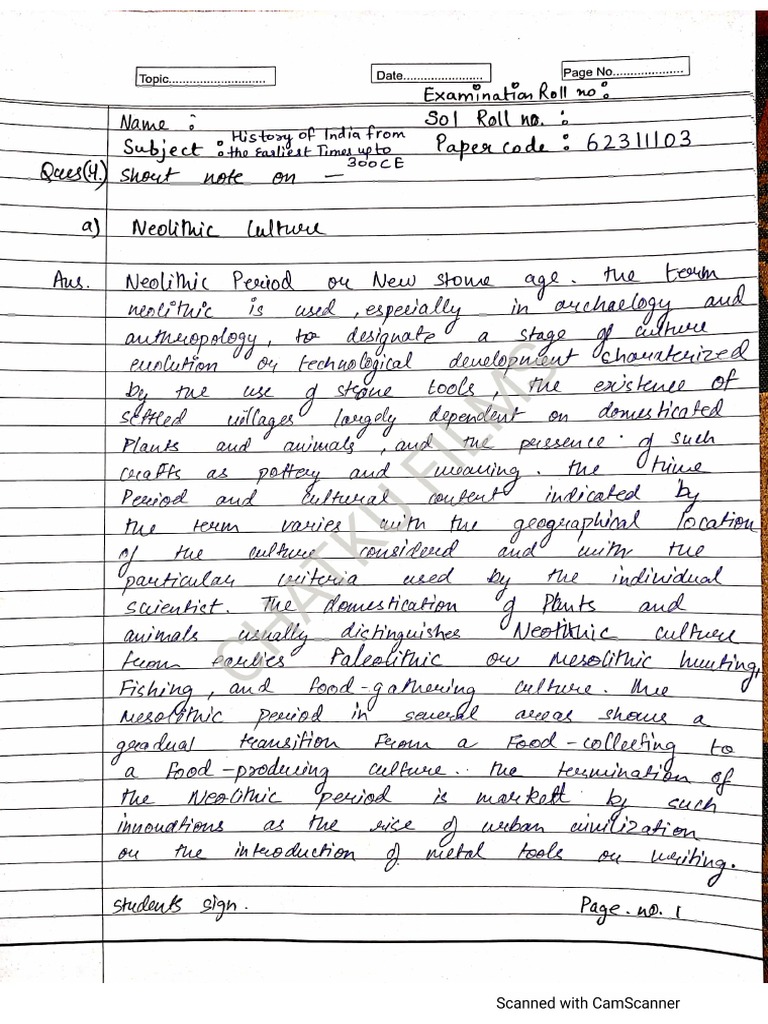 Topic............................ Date........................ Page No.....................
Examination Roll no :
Name : Sol Roll no. :
Subject : History of India from the Earliest Times up to 300CE Paper code : 62311103
Ques(4.) Short note on —
a) Neolithic Culture
Ans. Neolithic Period or New stone age. The term
neolithic is used, especially in archaelogy and
anthropology, to designate a stage of culture
evolution or technological development charaterized
by the use of stone tools, the existence of
settled villages largely dependent on domesticated
Plants and animals, and the presence of such
crafts as pottery and weaving. The time
Period and cultural content indicated by
the term varies with the geographical location
of the culture considered and with the
particular criteria used by the individual
scientist. The domestication of Plants and
animals usually distinguishes Neolithic culture
from earlies Paleolithic or Mesolithic hunting,
Fishing, and food-gathering culture. The
Mesolithic period in several areas shows a
gradual transition from a food-collecting to
a food-producing culture. The termination of
the Neolithic period is marked by such
innovations as the rise of urban civilization
or the introduction of metal tools or writing.
Students sign. Page. no. 1
CHATKU FILMS
Scanned with CamScanner